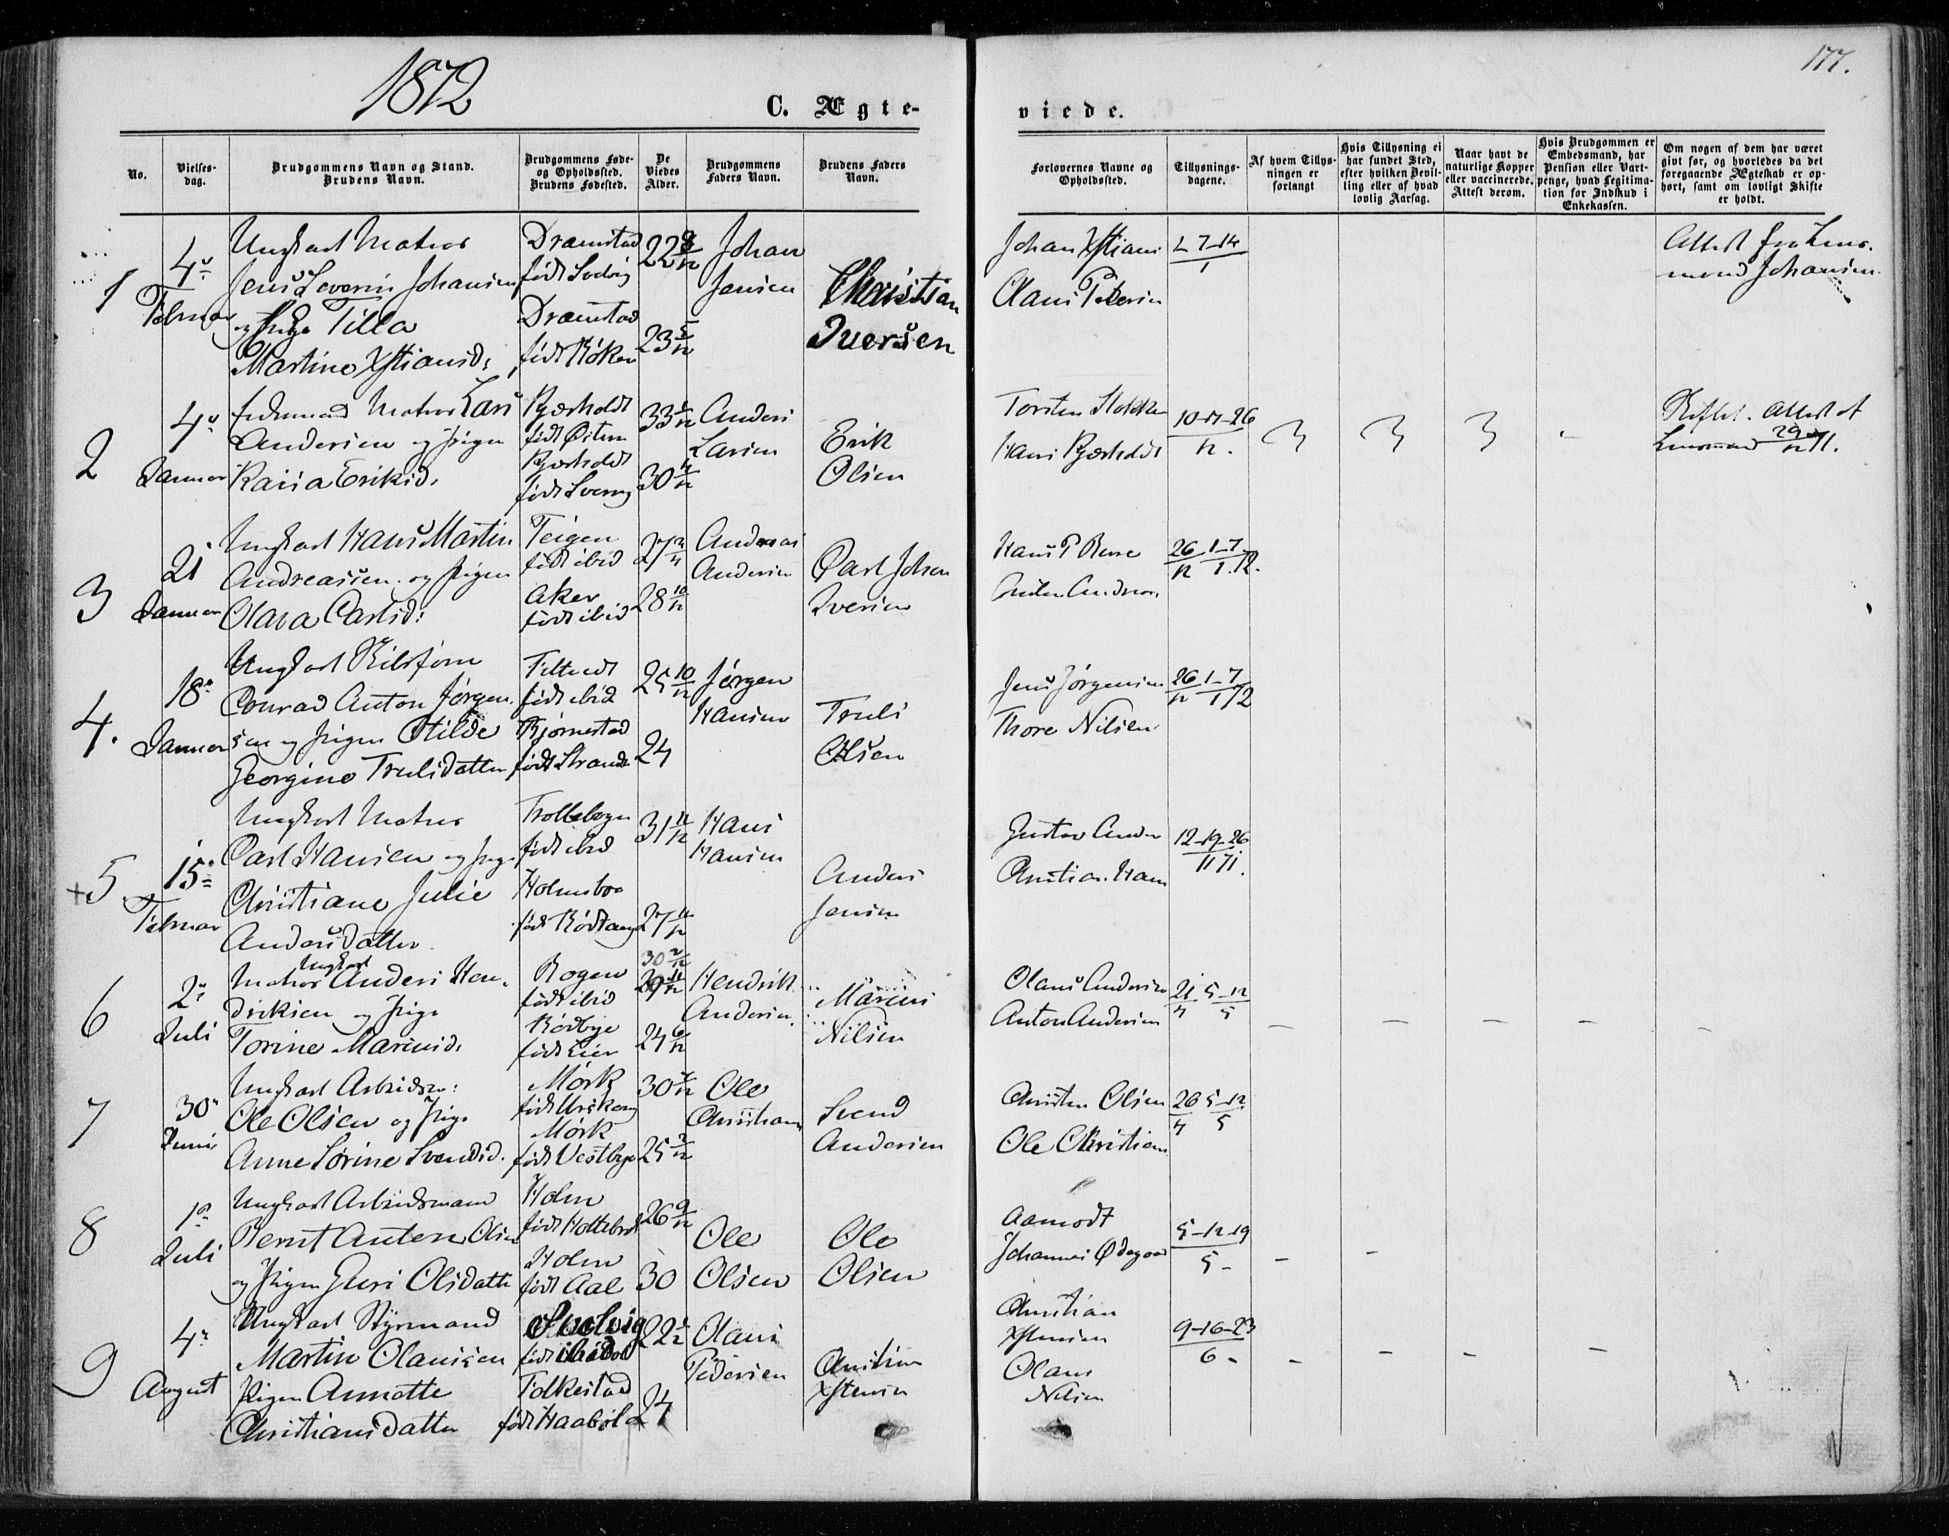 1872
177.
C. Ægte-
viede.
No.
Vielses-
dag.
Brudgommens Navn og Stand.
Brudens Navn.
Brudgommens Føde-
og Opholdssted.
Brudens Fødested.
De
Viedes
Alder.
Brudgommens
Faders Navn.
Brudens Faders
Navn.
Forlovernes Navne og
Opholdssted.
Tillysnings-
dagene.
Af hvem Tillys-
ningen er
forlangt
Hvis Tillysning ei
har fundet Sted,
efter hvilken Bevil-
ling eller af hvad
lovlig Aarsag.
Naar havt de
naturlige Kopper
eller vaccinerede.
Attest derom.
Hvis Brudgommen er
Embedsmand, har
Pension eller Vart-
penge, hvad Legitima-
tion for Indskud i
Enkekassen.
Om nogen af dem har været
givt før, og hvorledes da det
foregaaende Ægteskab er op-
hørt, samt om lovligt Skifte
er holdt.
1
4
Februar
Ungkarl Matros
Jens Severin Johansen
og Pige Tilla
Martine Xstiansd:
Dramstad
født Svelvig
Dramstad
født Røken
22 9/12
23 5/12
Johan
Jensen
Christian
Iversen
Johan Xstians
Claus Pedersen
7-14
1
Attest fra Lens-
mand Johansen
2
4
Januar
Matros Lars
Andersen og Pigen
Kaisa Eriksd:
Kjærholdt
født
Kjærholdt
født Sverig
33
30
Anders
Larsen
Erik
Olsen
Torsten
Hans Kjærholdt
10-17-26
12.
Attest af
Lensmand 29/12 71.
3
21
Januar
Ungkarl Hans Martin
Andreassen og Pigen
Olava Carlsd:
Teigen
født ibid
Aker
født ibid
27
28 10/12
Andreas
Andersen
Carl Johan
Iversen
Hans P
26 1-7
12 1.72.
4.
18
Januar
Ungkarl
Conrad Anton Jørgen-
sen og Pigen Otilde
Georgine Trulsdatter
født ibid
Bjørnestad
født Strande
25 10/12
24
Jørgen
Hansen
Truls
Olsen
Jens Jørgensen
Thore Nilsen
26 1-7
12 1 72
+5.
15
Februar
Ungkarl Matros
Carl Hansen og Pige
Christiane Julie
Andersdatter
Trollebogen
født ibid
Holmsbo
født Rødtang
31 11/12
27 11/12
Hans
Hansen
Anders
Jensen
Gustav Ander
Christian Hans
12-19-26
11 71.
6
2
Juli
Ungkarl
Matros Anders Hen-
driksen og Pige
Torine Marinisd:
Bogen
født ibid
Rødbye
født Lier
30 2/12
29 11/12
24 6/12
Hendrik
Andersen
Marinis
Nilsen
Olaus Andersen
Anton Andersen
21 5-12
4 5
7
30
Juni
Ungkarl Arbeidsm:
Ole Olsen og Pige
Anne Sørine Svendsd.
Mørk
født Urskoug
Mørk
født Vestbye
30
25 2/12
Ole
Christians
Svend
Andersen
Christen Olsen
Ole Christians
26 5-12
4 5
8
1
Juli
Ungkarl Arbeidsmand
Bernt Anten Olsen
og Pigen Guri Olsdatte
Holm
født
Holm
født Aal
26 9/12
30
Ole
Olsen
Ole
Olsen
Aamodt
Johannes Ødegaard
5-12-19
5
9
4
August
Ungkarl Styrmand
Martin Olaussen
Pigen Annette
Christiansdatter
Svelvig
født ibid
Tolkestad
født Haabøl
22
24
Olaus
Pedersen
Christian
Xstensen
Christian
Xstensen
Olaus
Nilsen
9-16-23
6